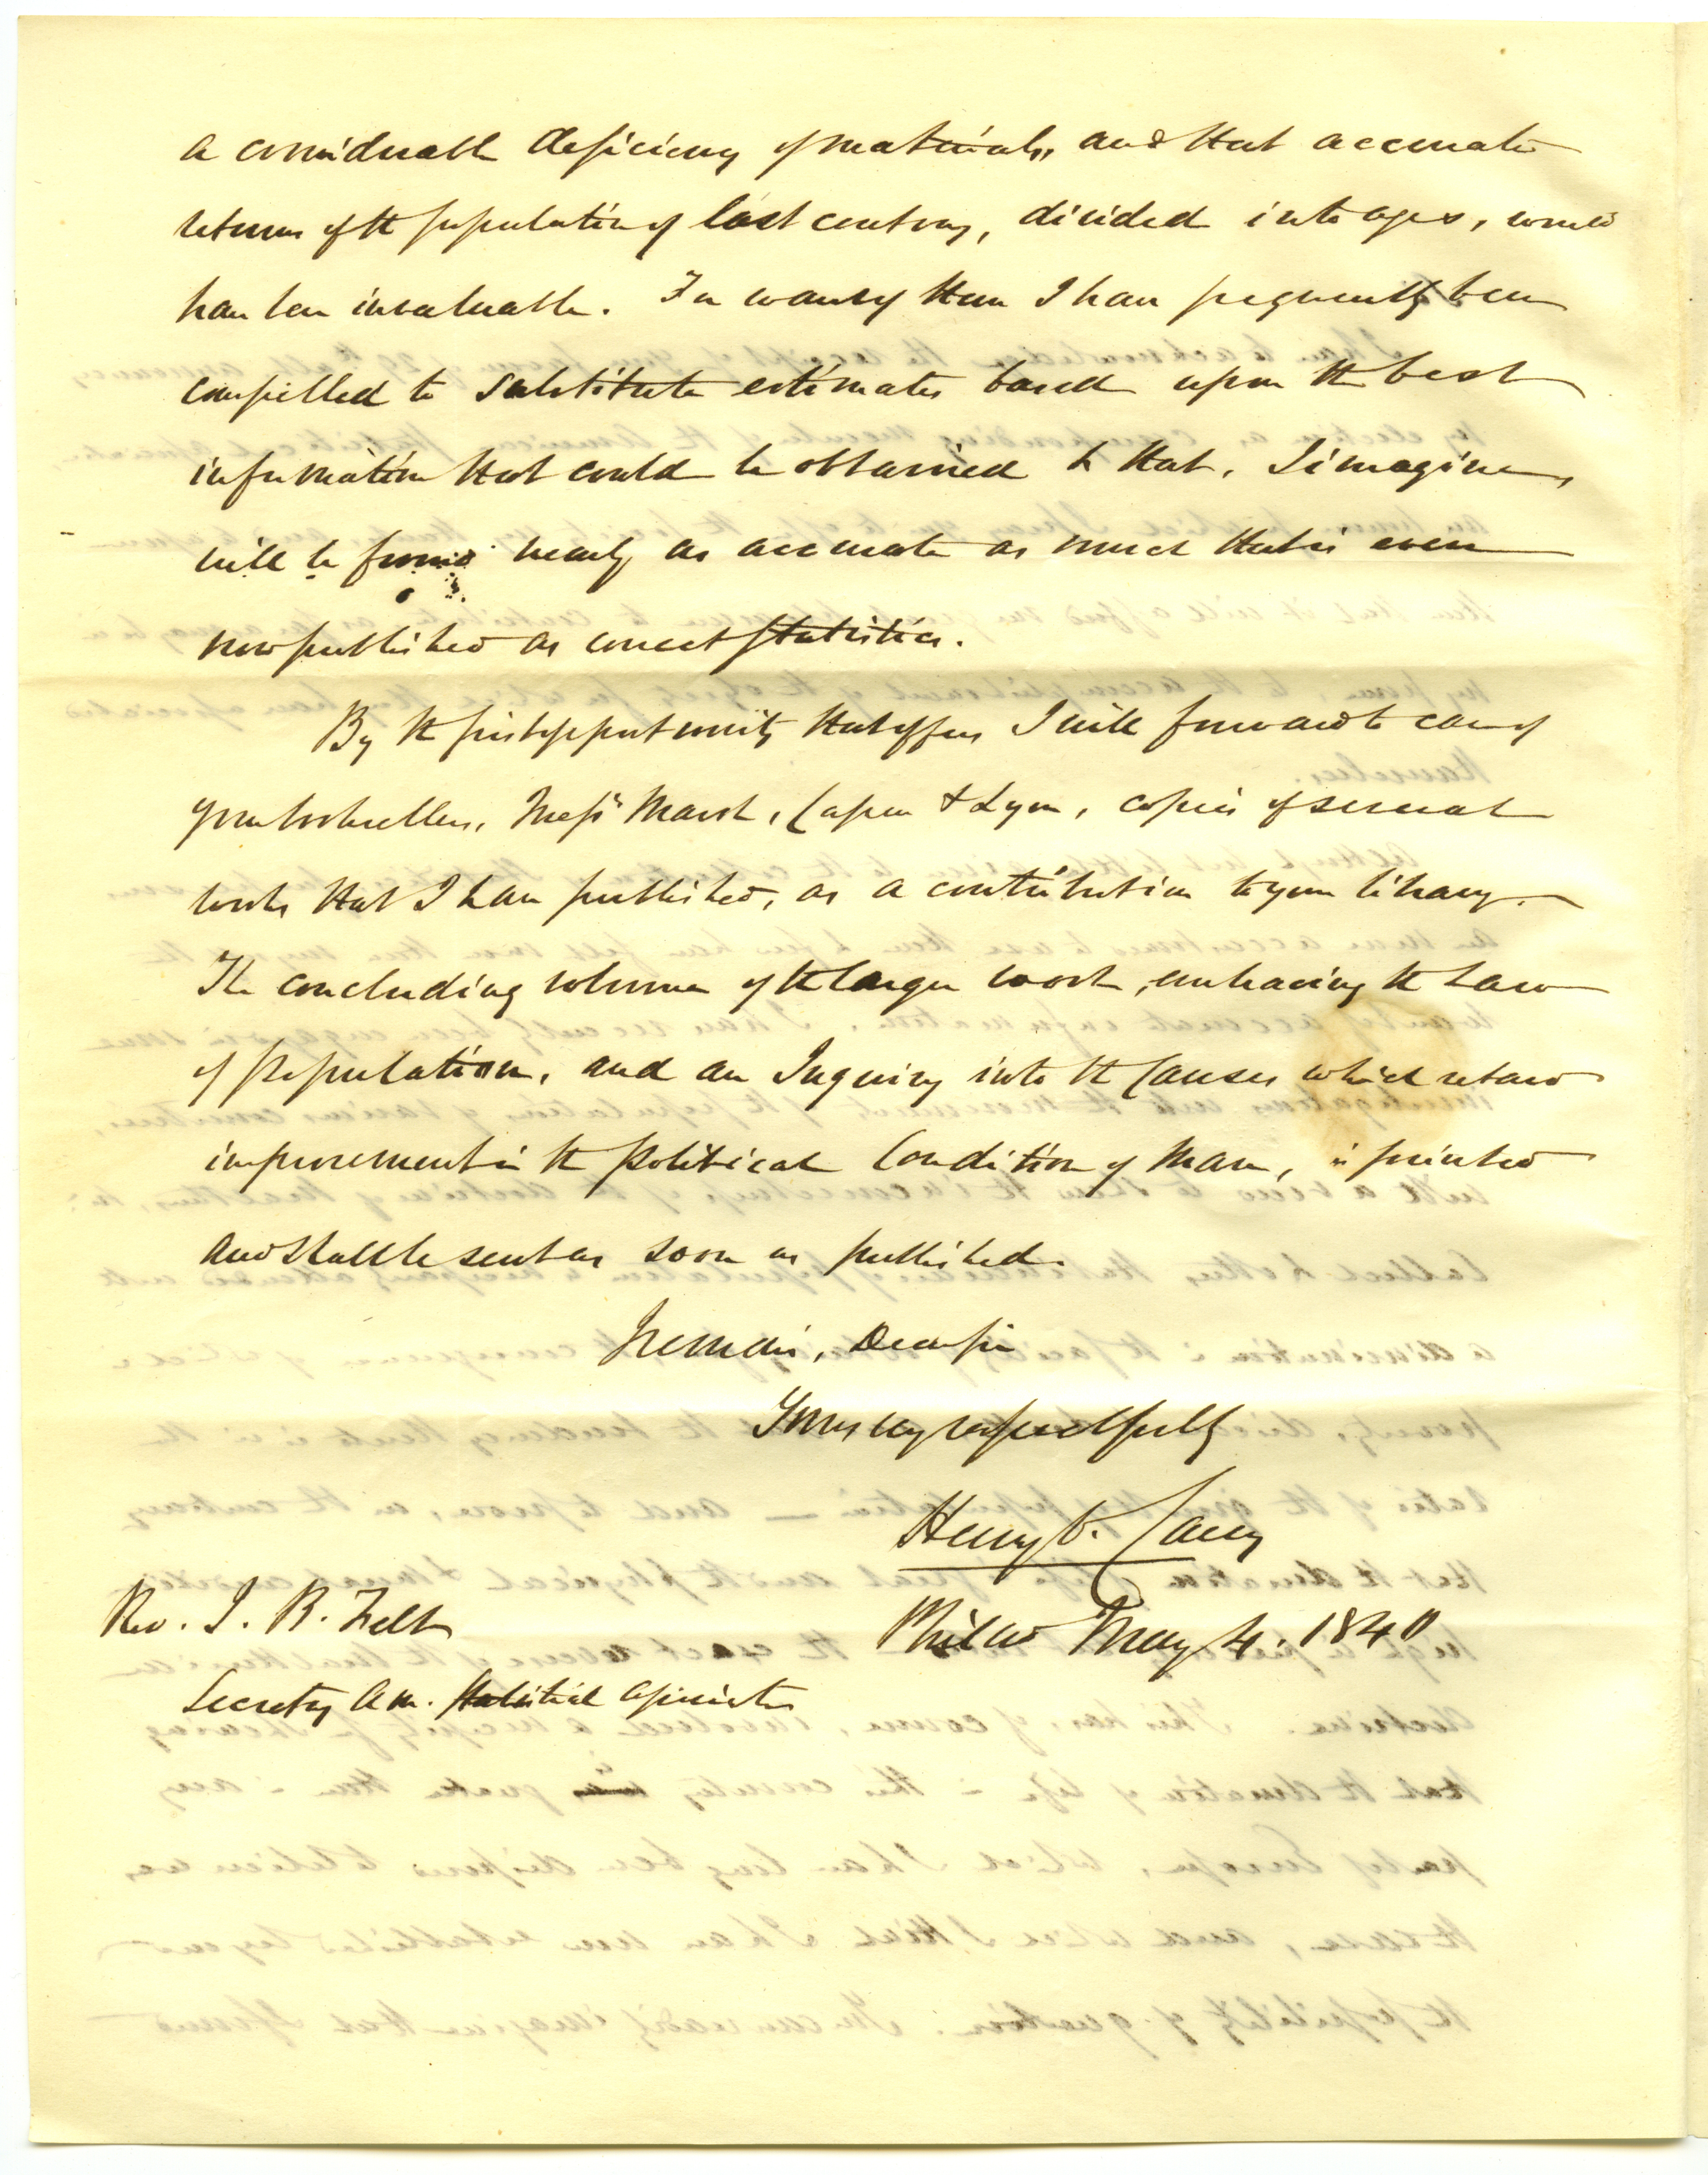 a considerable deficiency of materials, and that accurate
returns of the population of last century, divided into ages, would
have been invaluable. For want of them I have frequently been
compelled to substitute estimates based upon the best
information that could be obtained & that, I imagine,
will be found nearly as accurate as much that is even
now published as correct statistics.
By the first opportunity that offers I will forward to care of
your booksellers, Messrs Marsh, Capen & Lyon, copies of several
works that I have published, as a contribution to your library.
The concluding volume of the larger work, embracing the Law
of Population, and an Inquiry into the Causes which retard
improvement in the Political Condition of Man, is printed
and shall be sent as soon as published.
I remain, Dear sir
Yours very respectfully
Henry C. Carey
Rev. J. B. Felt
Philad May 4. 1840
Secretary Am. Statistical Association